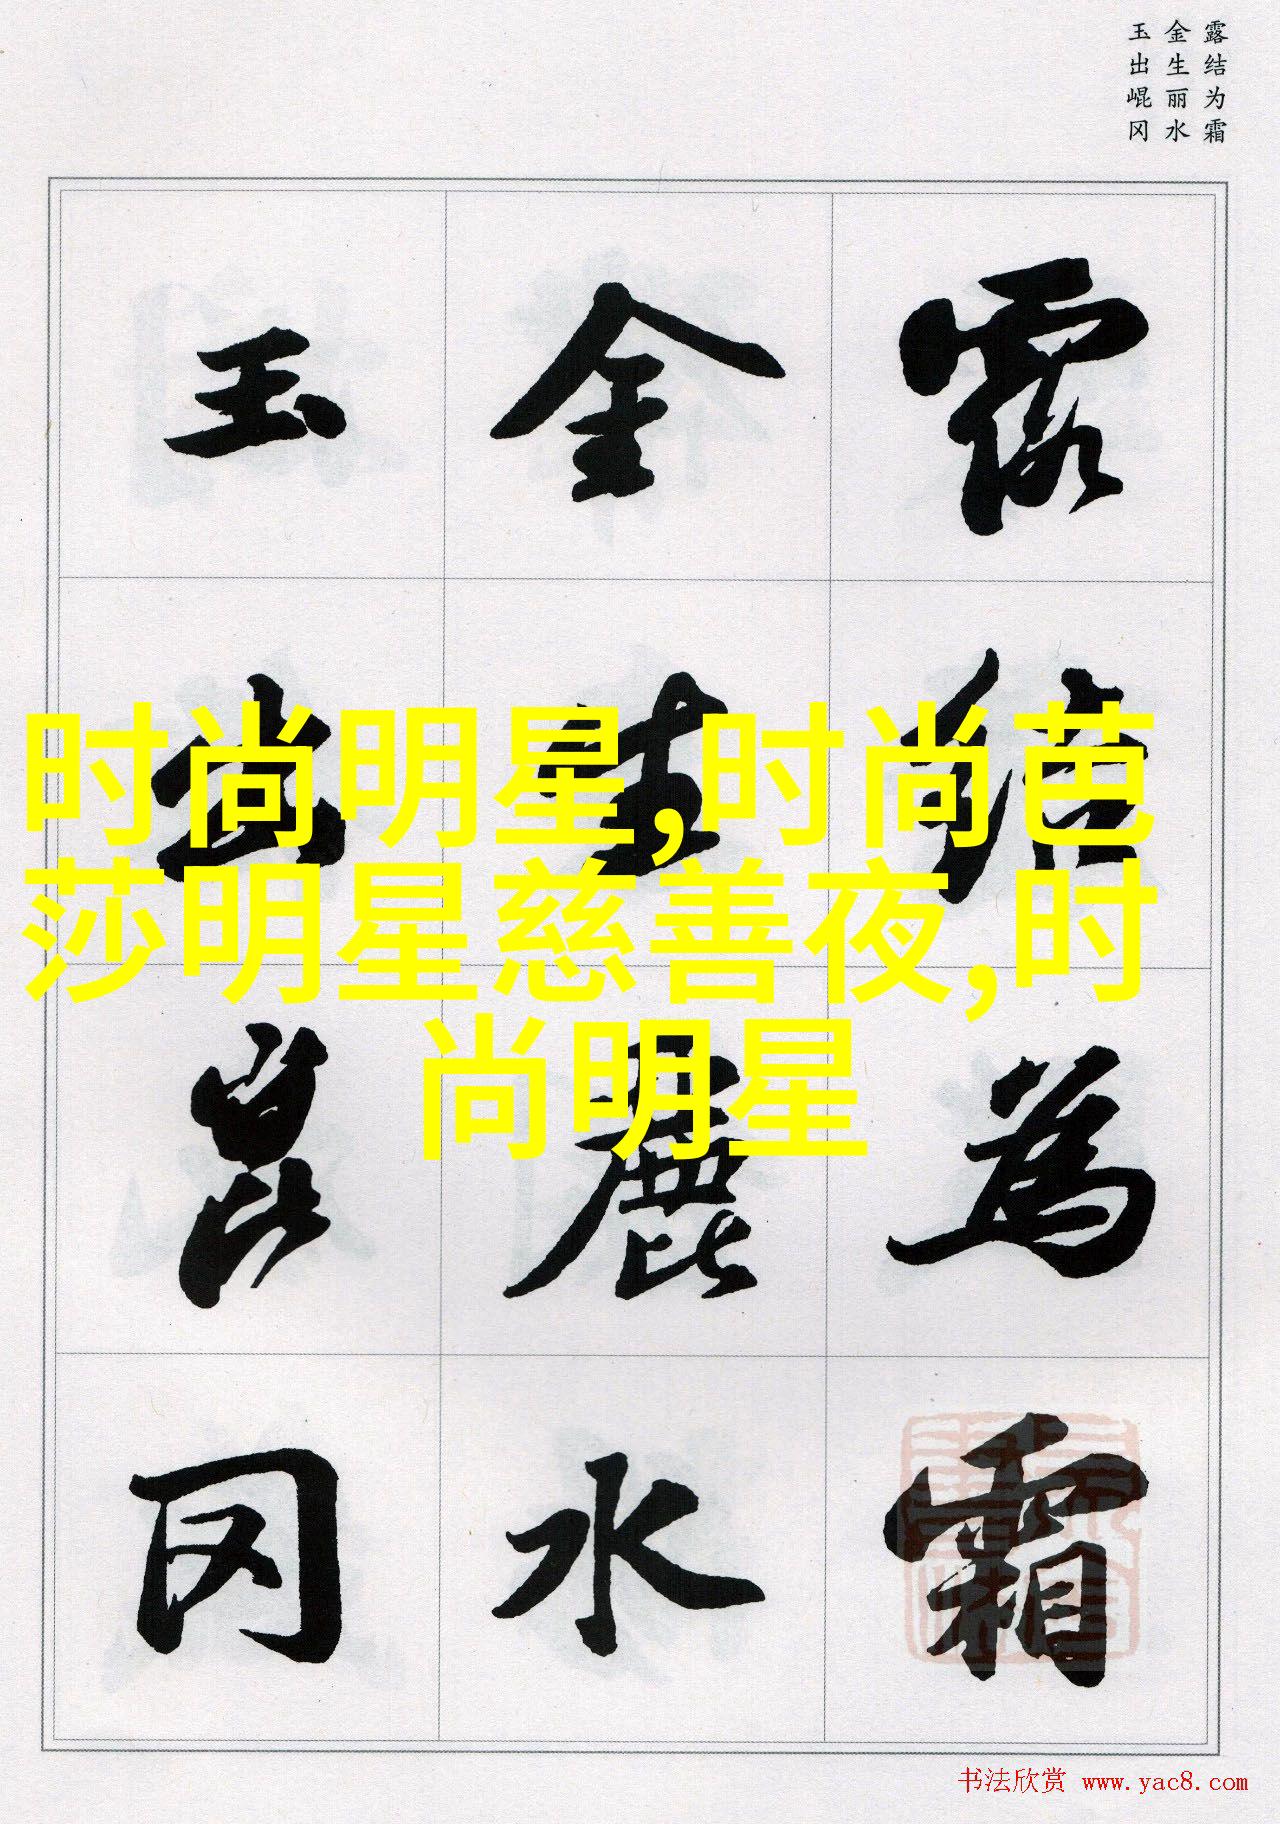 露结为霜
金生丽水
玉出崐冈
露結為霜
金生麗水
玉出崑冈
时尚明星,时尚芭
莎明星慈善夜,时
尚明星
书法欣赏 www.yac8.com